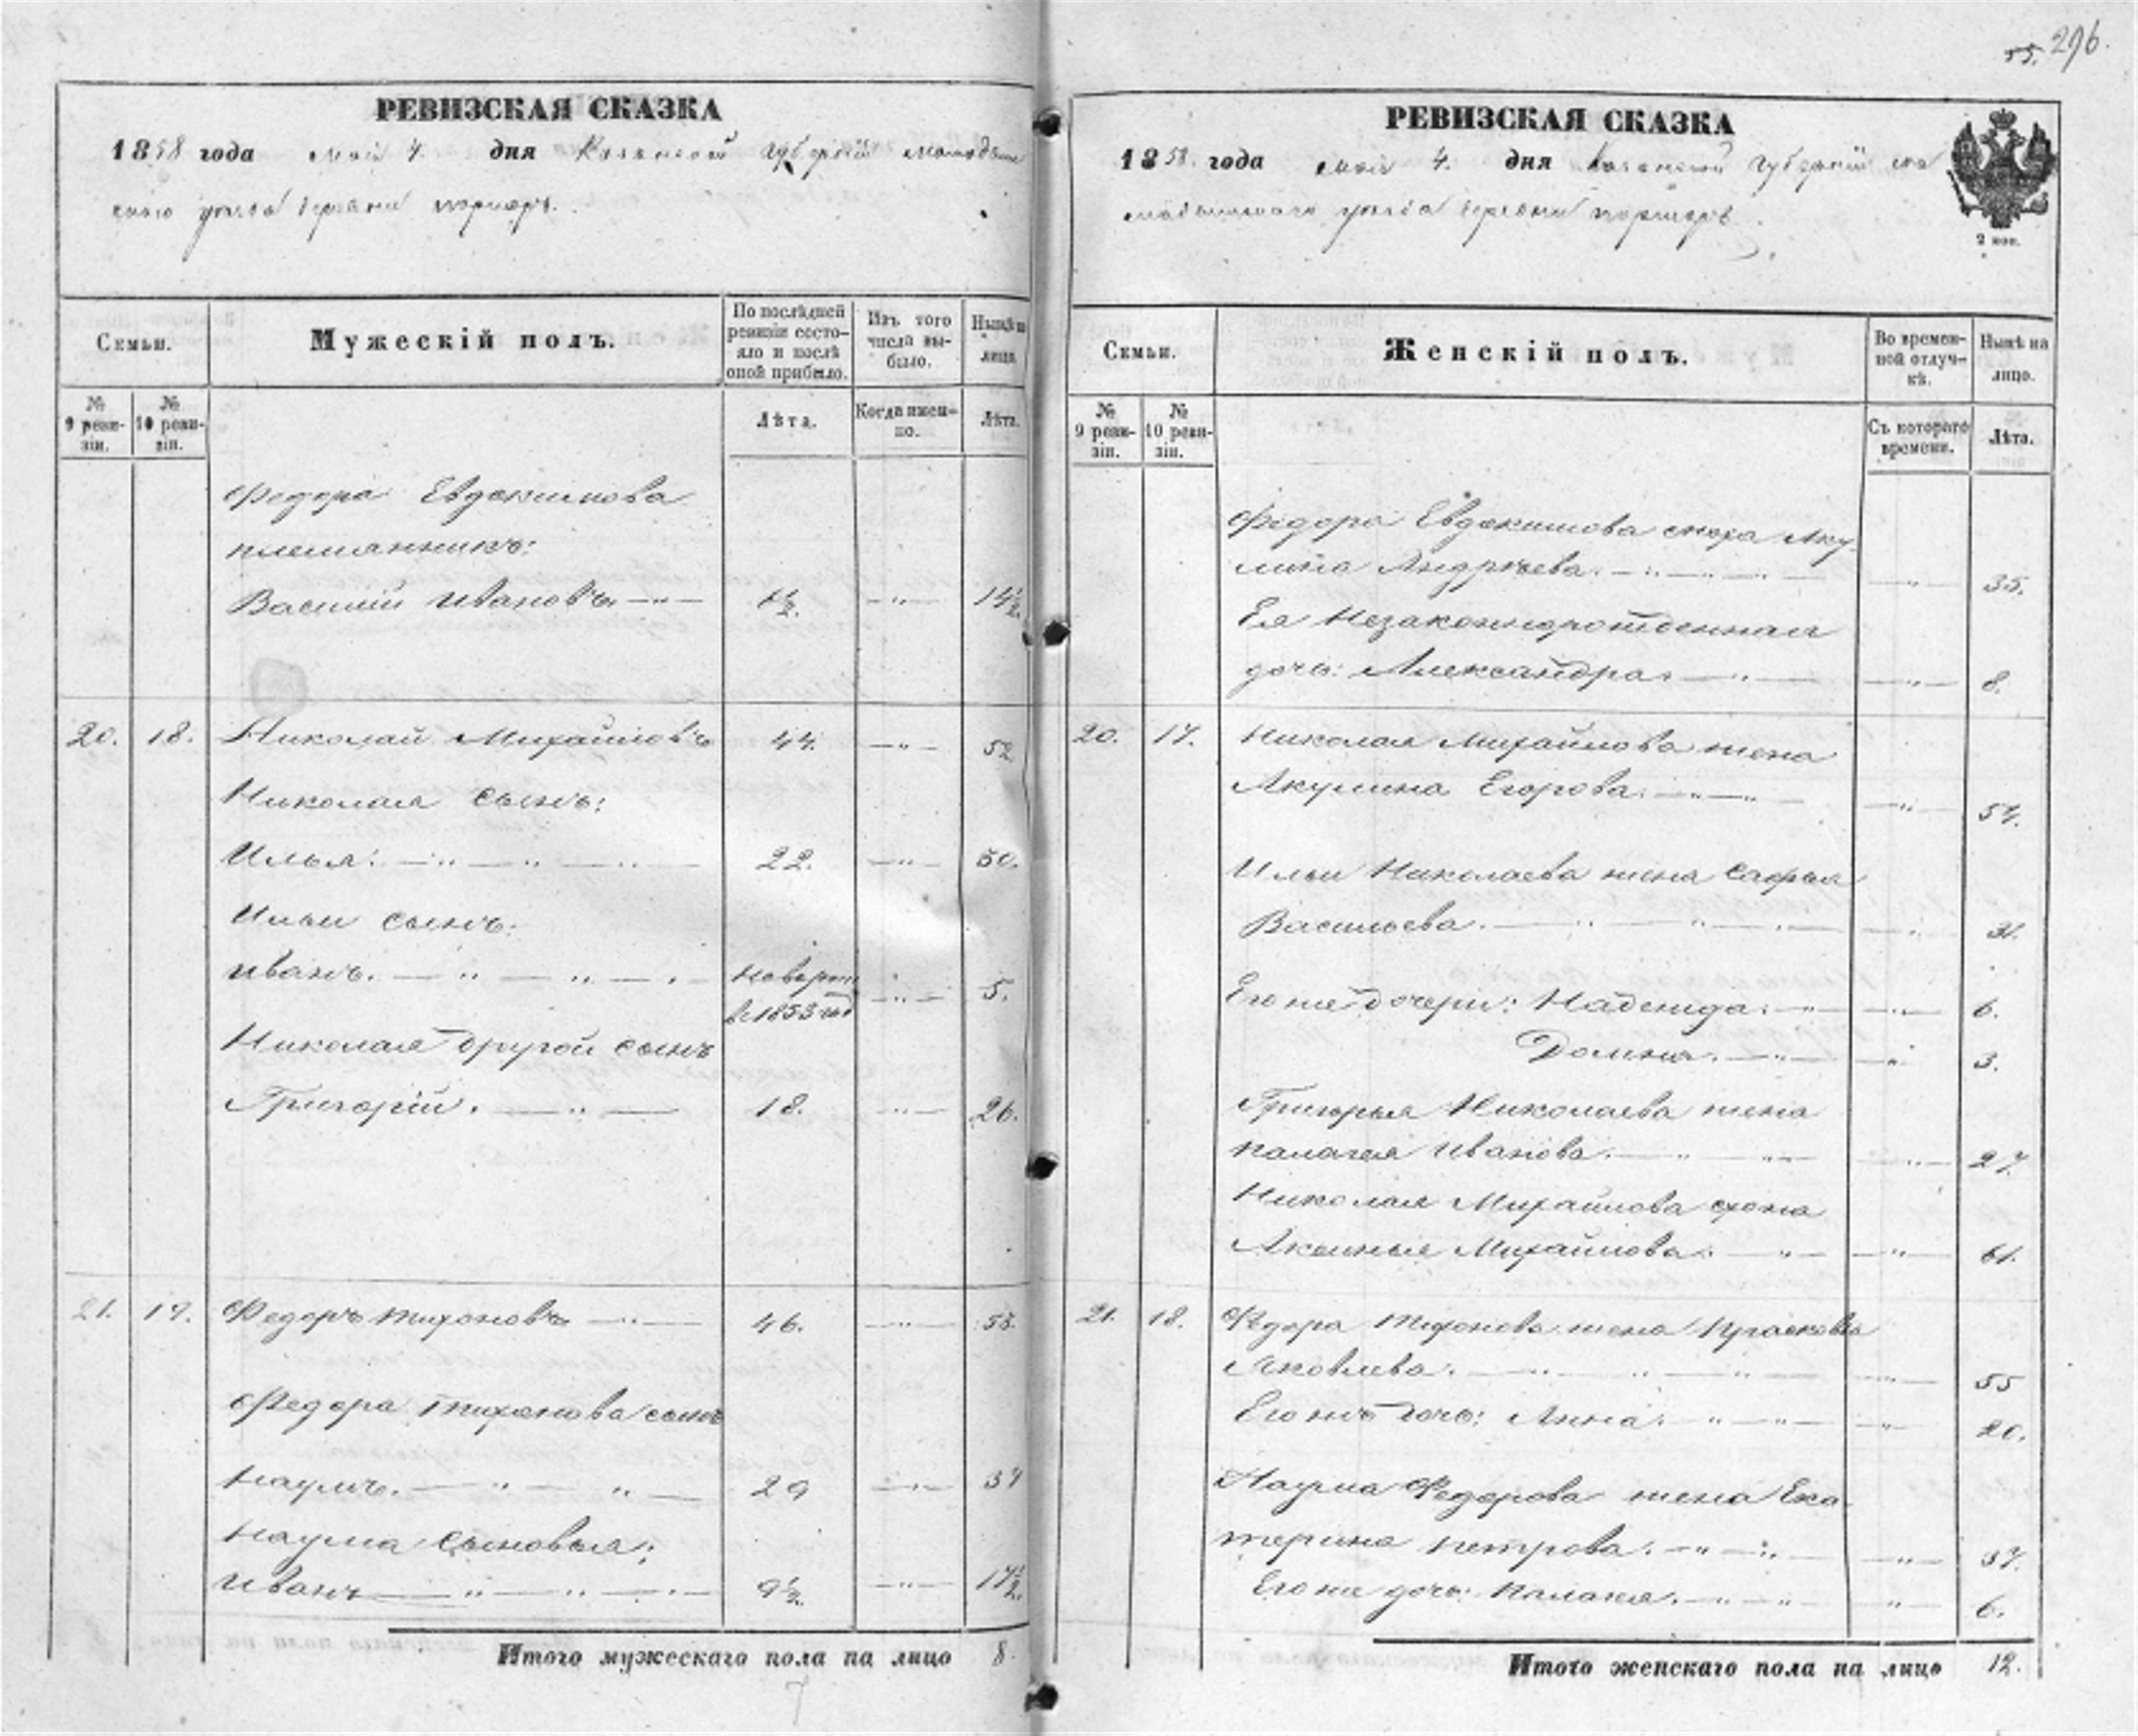 55. 296.
РЕВИЗСКАЯ СКАЗКА
1858 года мая 4. дня Казанской губернии мамадыш
скаго уезда деревни
Семьи.
Мужескій полъ.
По послѣдней ревизіи состояло и послѣ оной прибыло.
Изъ того числа выбыло.
Нынѣ на лицо.
№ 9 ревизіи.
№ 10 ревизіи.
Лѣта.
Когда именно.
Лѣта.
Федора Евдокимова
племянникъ:
Василий Ивановъ 14½.
20. 18. Николай Михайловъ 44. 52
Николая сынъ:
Илья. 22. 30.
Ильи сынъ:
Иванъ. новорож 5.
в 1853 год
Николая другой сынъ
Григорий. 18. 26.
21. 19. Федоръ Тихоновъ 46. 55.
Федора Тихонова сынъ
Наумъ. 29 37
Наума сыновья:
Иванъ 9½. 17½.
Итого мужескаго пола на лицо 8.
7
РЕВИЗСКАЯ СКАЗКА
1858. года мая 4. дня Казанской губернии ма
мадышскаго уезда деревни
2 коп.
Семьи.
Женскій полъ.
Во временной отлучкѣ.
Нынѣ на лицо.
№ 9 ревизіи.
№ 10 ревизіи.
Съ котораго времени.
Лѣта.
Федора Евдокимова сноха Аку
лина Андреева. 35.
Ея Незаконнорожденная
дочь: Александра. 8.
20. 17. Николая Михайлова жена
Акулина Егорова. 57.
Ильи Николаева жена Софья
Васильева. 31.
Его же дочери: Надежда. 6.
Домна. 3.
Григорья Николаева жена
Палагея Иванова. 27.
Николая Михайлова
Аксинья Михайлова. 61.
21. 18. Федора Тихонова жена Прасковья
Яковлева. 55
Его же дочь: Анна. 20.
Наума Федорова жена Ека
терина Петрова. 37.
Его же дочь: Палагея. 6.
Итого женскаго пола на лицо 12.